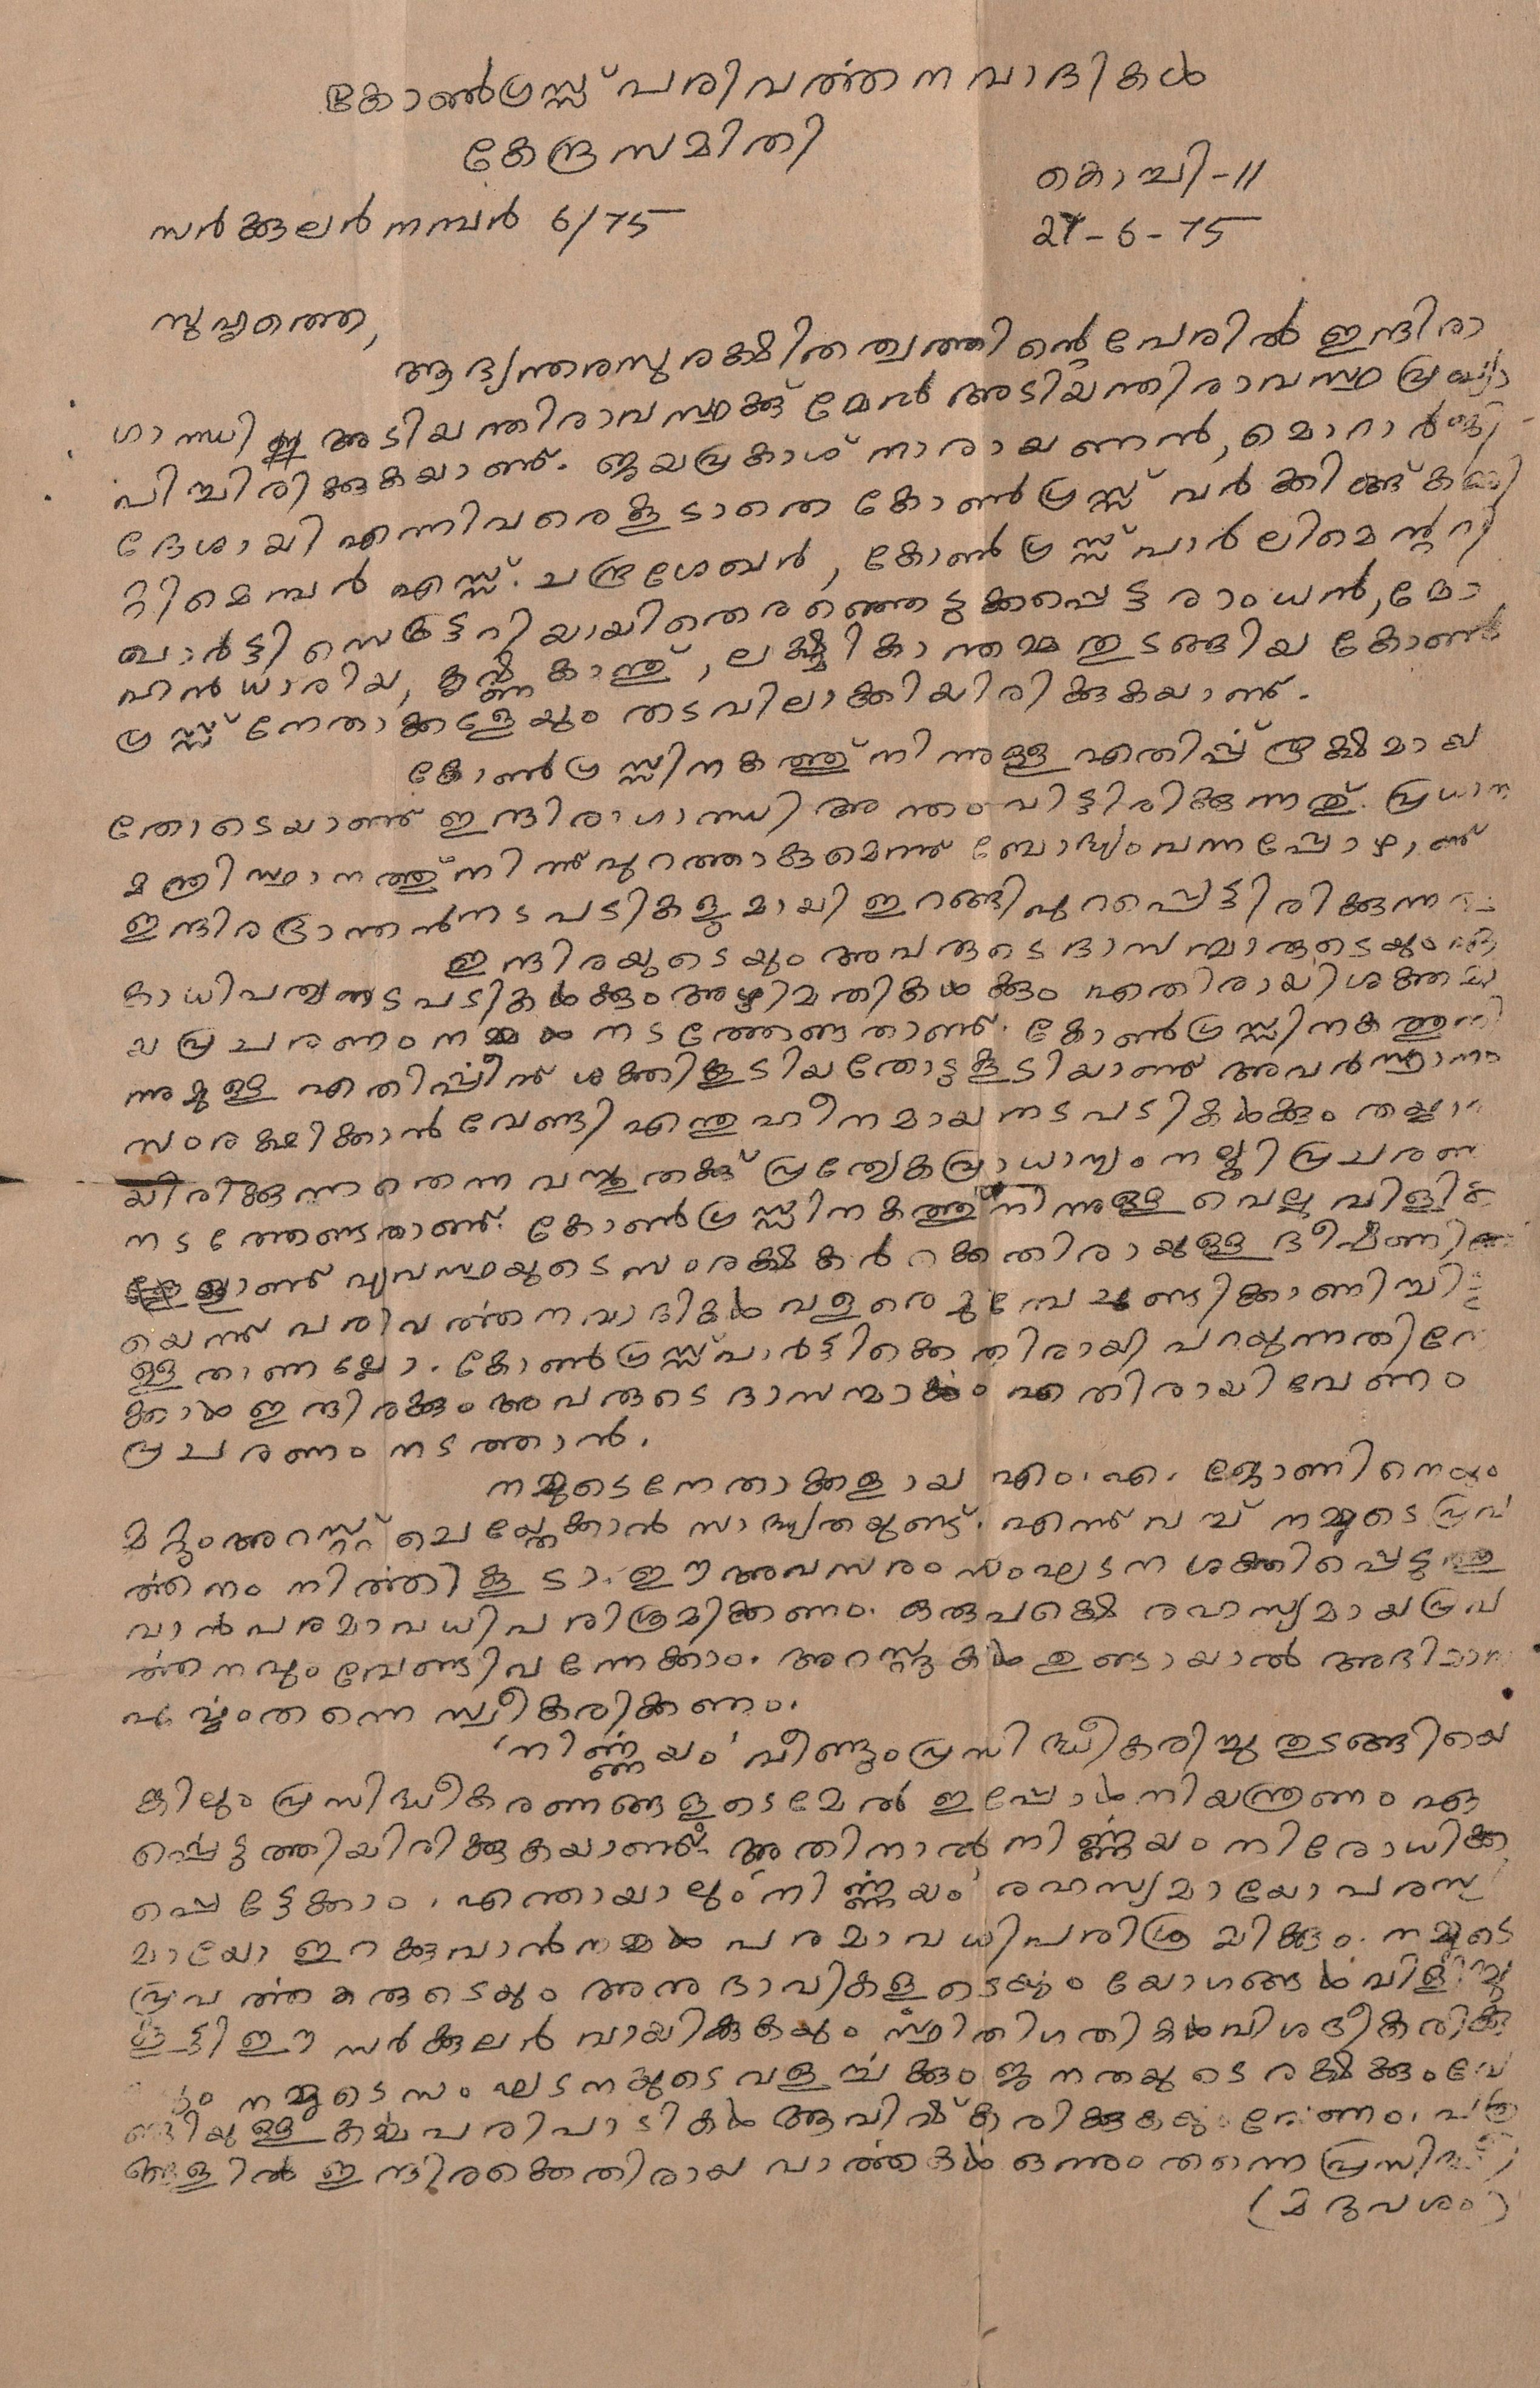 കോൺഗ്രസ്സ് പരിവർത്തനവാദികൾ
കേന്ദ്രസമിതി
കൊച്ചി-11
സർക്കുലർ നമ്പർ 6/75
27-6-75
സുഹൃത്തെ,
ആഭ്യന്തരസുരക്ഷിതത്വത്തിന്റെ പേരിൽ ഇന്ദിരാ
ഗാന്ധി അടിയന്തിരാവസ്ഥക്ക് മേൽ അടിയന്തിരാവസ്ഥ പ്രഖ്യാ
പിച്ചിരിക്കുകയാണ്. ജയപ്രകാശ് നാരായണൻ, മൊറാർജി
ദേശായി എന്നിവരെകൂടാതെ കോൺഗ്രസ്സ് വർക്കിങ്ങ് കമ്മി
റ്റിമെമ്പർ എസ്സ്. ചന്ദ്രശേഖർ, കോൺഗ്രസ്സ് പാർലിമെന്ററി
പാർട്ടി സെക്രട്ടറിയായി തെരഞ്ഞെടുക്കപ്പെട്ട രാംധൻ, മോ
ഹൻ ധാരിയ, കൃഷ്ണകാന്ത്, ലക്ഷ്മികാന്തമ്മ തുടങ്ങിയ കോൺ
ഗ്രസ്സ് നേതാക്കളേയും തടവിലാക്കിയിരിക്കുകയാണ്.
കോൺഗ്രസ്സിനകത്തു് നിന്നുള്ള എതിപ്പ് രൂക്ഷമായ
തോടെയാണ് ഇന്ദിരാഗാന്ധി അന്തംവിട്ടിരിക്കുന്നത്. പ്രധാന
മന്ത്രിസ്ഥാനത്തു് നിന്ന് പുറത്താകുമെന്ന് ബോദ്ധ്യംവന്നപ്പോഴാണ്
ഇന്ദിര ഭ്രാന്തൻ നടപടികളുമായി ഇറങ്ങിപുറപ്പെട്ടിരിക്കുന്ന
ഇന്ദിരയുടെയും അവരുടെ ദാസന്മാരുടെയും
കാധിപത്യനടപടികൾക്കും അഴിമതികൾക്കും എതിരായി ശക്തമാ
യ പ്രചരണം നമ്മൾ നടത്തേണ്ടതാണ്. കോൺഗ്രസ്സിനകത്തുനി
ന്നുമുള്ള എതിപ്പിന് ശക്തികൂടിയതോടുകൂടിയാണ് അവർ സ്ഥാനം
സംരക്ഷിക്കാൻ വേണ്ടി എന്തു ഹീനമായ നടപടികൾക്കും തയ്യാറാ
യിരിക്കുന്നതെന്ന വസ്തുതക്ക് പ്രത്യേകപ്രാധാന്യം നല്കി പ്രചരണ
നടത്തേണ്ടതാണ്. കോൺഗ്രസ്സിനകത്തു് നിന്നുള്ള വെല്ലുവിളിക
ളാണ് വ്യവസ്ഥയുടെ സംരക്ഷകർക്കെതിരായുള്ള ഭീഷണി
യെന്ന് പരിവർത്തനവാദികൾ വളരെ മുമ്പേ ചൂണ്ടിക്കാണിച്ചി
ള്ളതാണല്ലോ. കോൺഗ്രസ്സ് പാർട്ടിക്കെതിരായി പറയുന്നതിനേ
ക്കാൾ ഇന്ദിരക്കും അവരുടെ ദാസന്മാർക്കും എതിരായി വേണം
പ്രചരണം നടത്താൻ.
നമ്മുടെ നേതാക്കളായ എം.എ. ജോണിനെയും
മറ്റും അറസ്റ്റ് ചെയ്തേക്കാൻ സാദ്ധ്യതയുണ്ട്. എന്ന് വച്ച് നമ്മുടെ പ്രവ
ർത്തനം നിർത്തികൂടാ. ഈ അവസരം സംഘടന ശക്തിപ്പെടുത്തു
വാൻ പരമാവധി പരിശ്രമിക്കണം. ഒരുപക്ഷെ രഹസ്യമായ പ്രവ
ർത്തനവും വേണ്ടിവന്നേക്കാം. അറസ്റ്റുകൾ ഉണ്ടായാൽ അഭിമാന
പൂർവ്വംതന്നെ സ്വീകരിക്കണം.
'നിർണ്ണയം' വീണ്ടും പ്രസിദ്ധീകരിച്ചു തുടങ്ങിയെ
ങ്കിലും പ്രസിദ്ധീകരണങ്ങളുടെ മേൽ ഇപ്പോൾ നിയന്ത്രണം ഏ
ർപ്പെടുത്തിയിരിക്കുകയാണ്. അതിനാൽ നിർണ്ണയം നിരോധിക്ക
പ്പെട്ടേക്കാം. എന്തായാലും 'നിർണ്ണയം' രഹസ്യമായോ പരസ്യ
മായോ ഇറക്കുവാൻ നമ്മൾ പരമാവധി പരിശ്രമിക്കും. നമ്മുടെ
പ്രവർത്തകരുടെയും അനുഭാവികളുടെയും യോഗങ്ങൾ വിളിച്ചു
കൂട്ടി ഈ സർക്കുലർ വായിക്കുകയും സ്ഥിതിഗതികൾ വിശദീകരിക്കു
നമ്മുടെ സംഘടനയുടെ വളർച്ചക്കും ജനതയുടെ രക്ഷക്കും വേ
ണ്ടിയുള്ള കർമ്മപരിപാടികൾ ആവിഷ്കരിക്കുകയും വേണം. പത്ര
ങ്ങളിൽ ഇന്ദിരക്കെതിരായ വാർത്തകൾ ഒന്നും തന്നെ പ്രസിദ്ധീ
(മറുവശം)